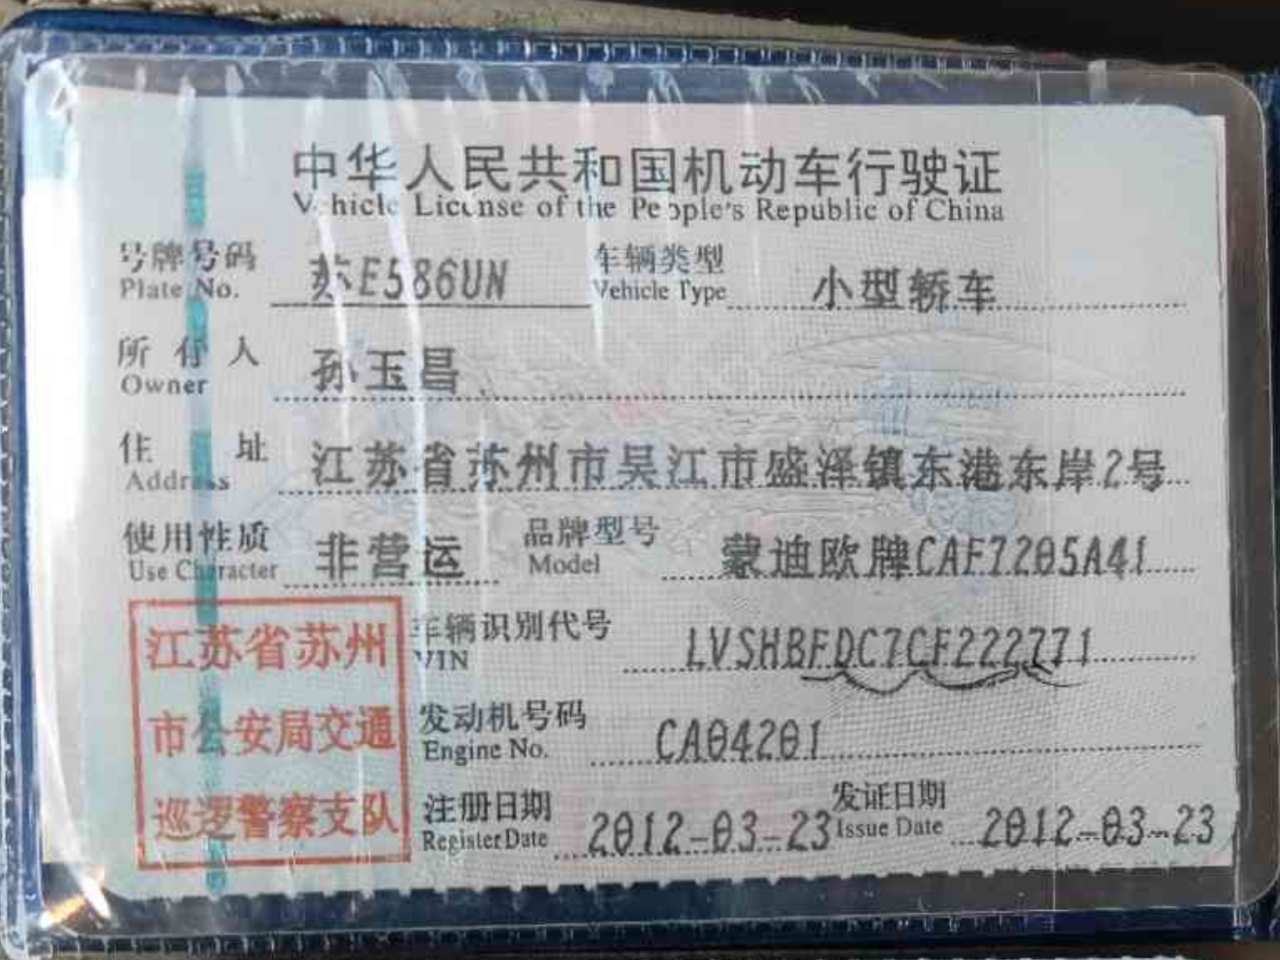 中华人民共和国机动车行驶证
Vehicle License of the People's Republic of China
号牌号码 苏E586UN 车辆类型 小型轿车
Plate No. Vehicle Type
所有人 孙玉昌
Owner
住址 江苏省苏州市吴江市盛泽镇东港东岸2号
Address
使用性质 非营运 品牌型号 蒙迪欧牌CAF7205A41
Use Character Model
江苏省苏州 车辆识别代号 LVSHBFDC7CF222771
VIN
市公安局交通 发动机号码 CA04201
Engine No.
巡逻警察支队 注册日期 2012-03-23 发证日期 2012-03-23
Register Date Issue Date